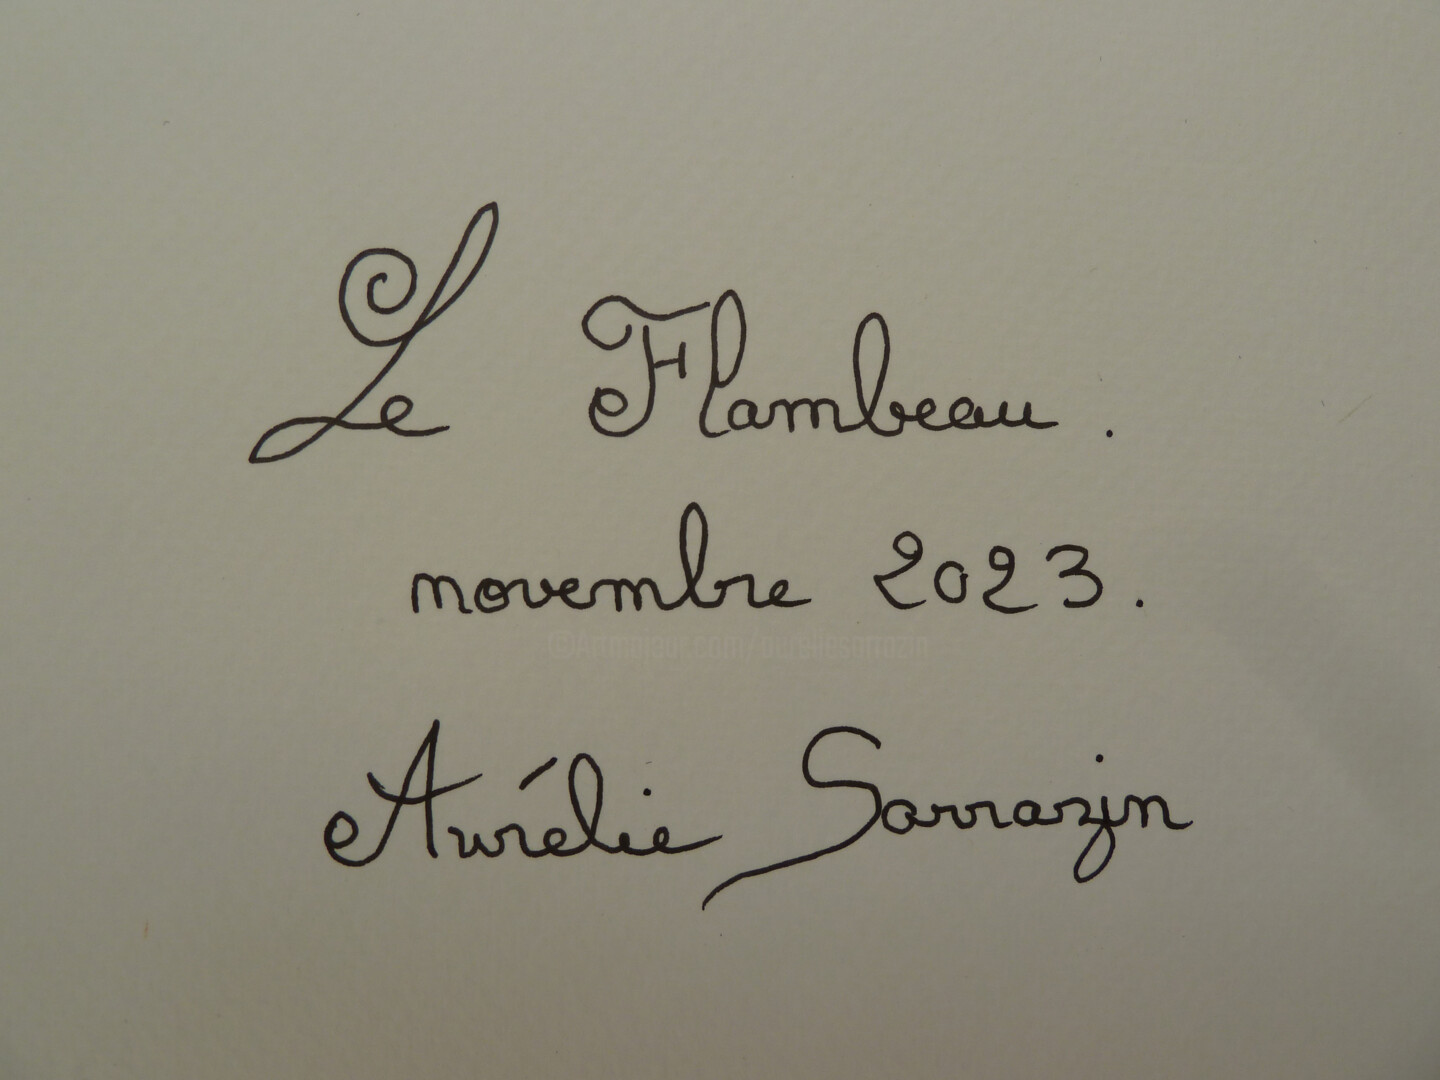 Le Flambeau.
novembre 2023.
©Artmajeur.com/aureliesarrazin
Aurélie Sarrazin